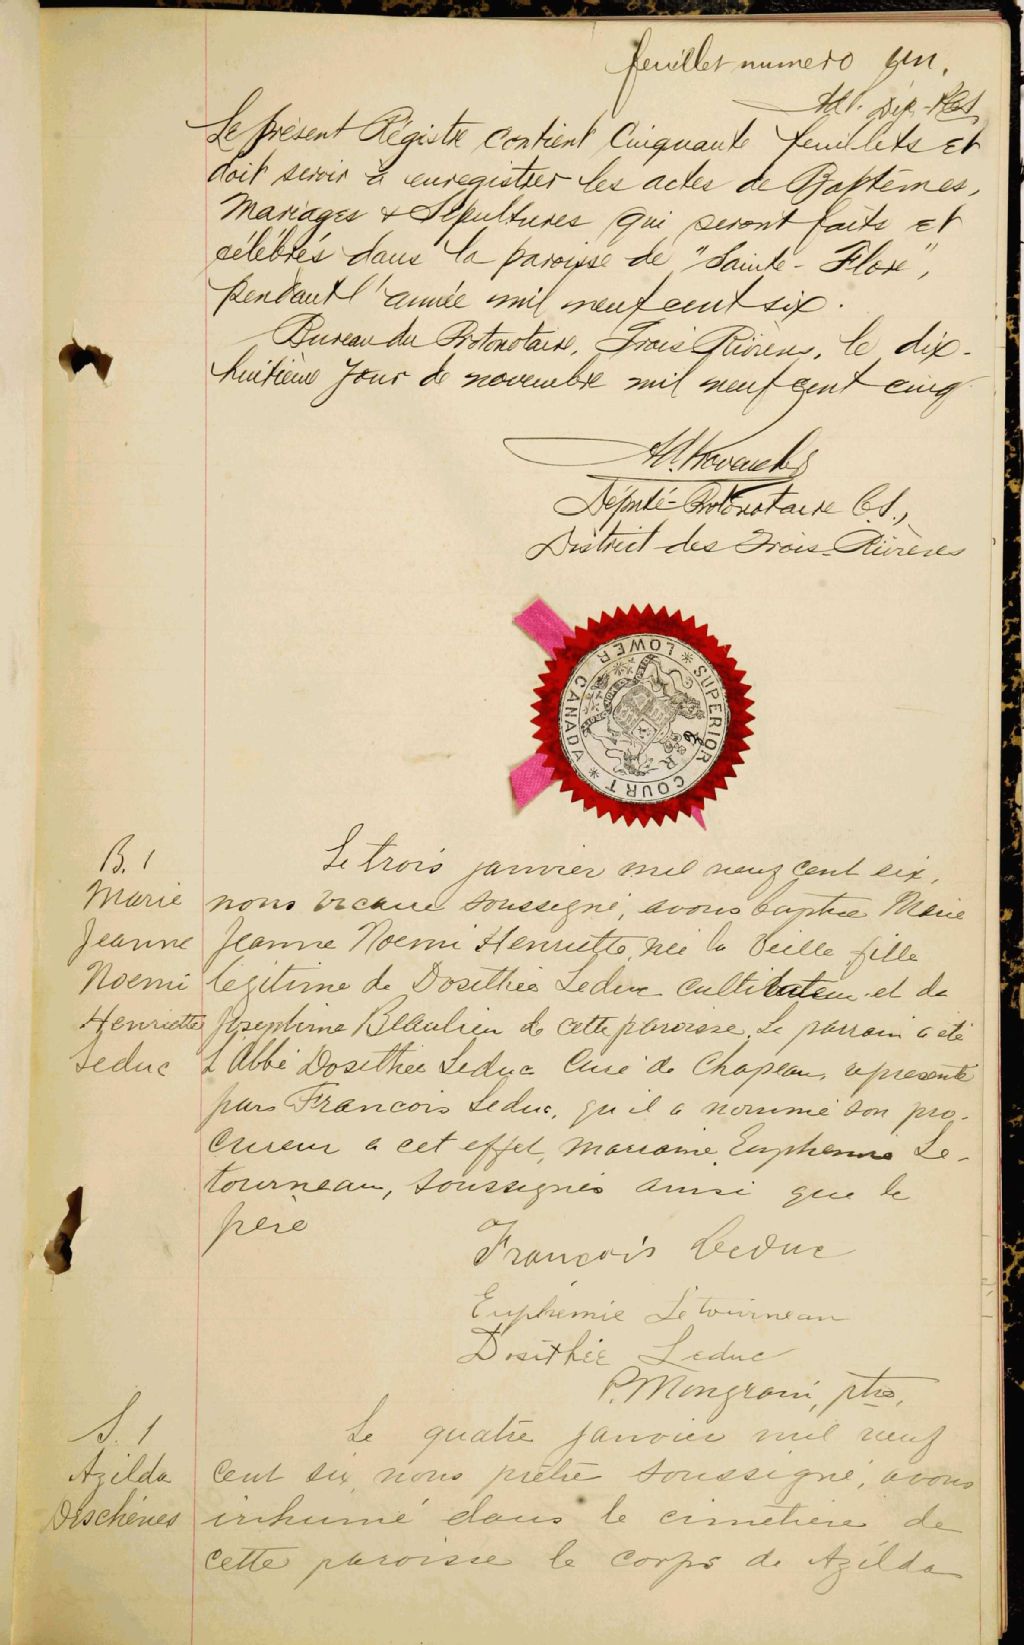 feuillet numero un.
Dép. P.C.S.
Le présent Régistre contient Cinquante feuillets et
doit servir à enregistrer les actes de Baptêmes,
Mariages & Sépultures qui seront faits et
célébrés dans la paroisse de "Sainte-Flore",
pendant l'année mil neuf cent six.
Bureau du Protonotaire, Trois Rivières, le dix-
huitième jour de novembre mil neuf cent cinq
Député-Protonotaire C.S.,
District des Trois-Rivières
SUPERIOR COURT * LOWER CANADA *
B. 1
Marie
Jeanne
Noemi
Henriette
Leduc
Le trois janvier mil neuf cent six,
nous vicaire soussigné, avons baptisé Marie
Jeanne Noemi Henriette, née la veille fille
légitime de Dosithée Leduc cultivateur et de
Josephine Beaulieu de cette paroisse. Le parrain a été
L'Abbé Dosithée Leduc Curé de Chapeau, représenté
par Francois Leduc, qu'il a nommé son pro-
cureur a cet effet, marraine Euphemie Le-
tourneau, soussignés ainsi que le
père
François Leduc
Euphémie Létourneau
Dosithée Leduc
P. Mongrain, ptre.
S. 1
Azilda
Deschênes
Le quatre janvier mil neuf
cent six, nous prêtre soussigné, avons
inhumé dans le cimetière de
cette paroisse le corps de Azilda